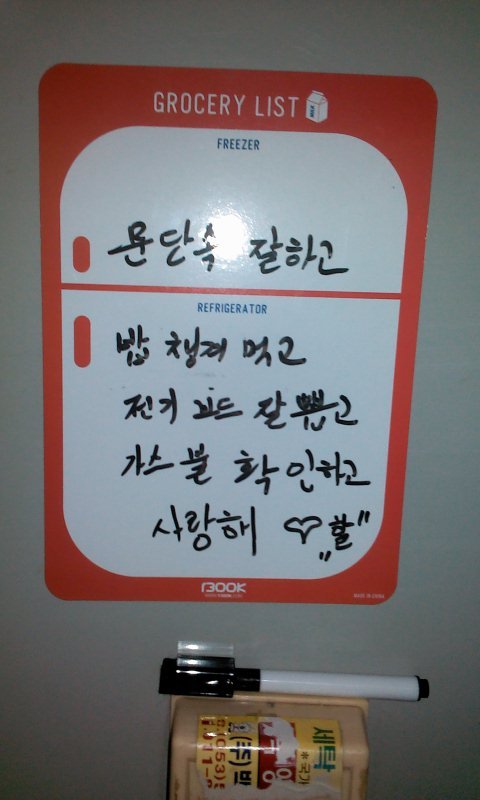 GROCERY LIST
MILK
FREEZER
문단속 잘하고
REFRIGERATOR
밥 챙겨 먹고
전기 코드 잘 뽑고
가스불 확인하고
사랑해 ♡ "할"
BOOK
MADE IN CHINA
세탁
(주)
(053)